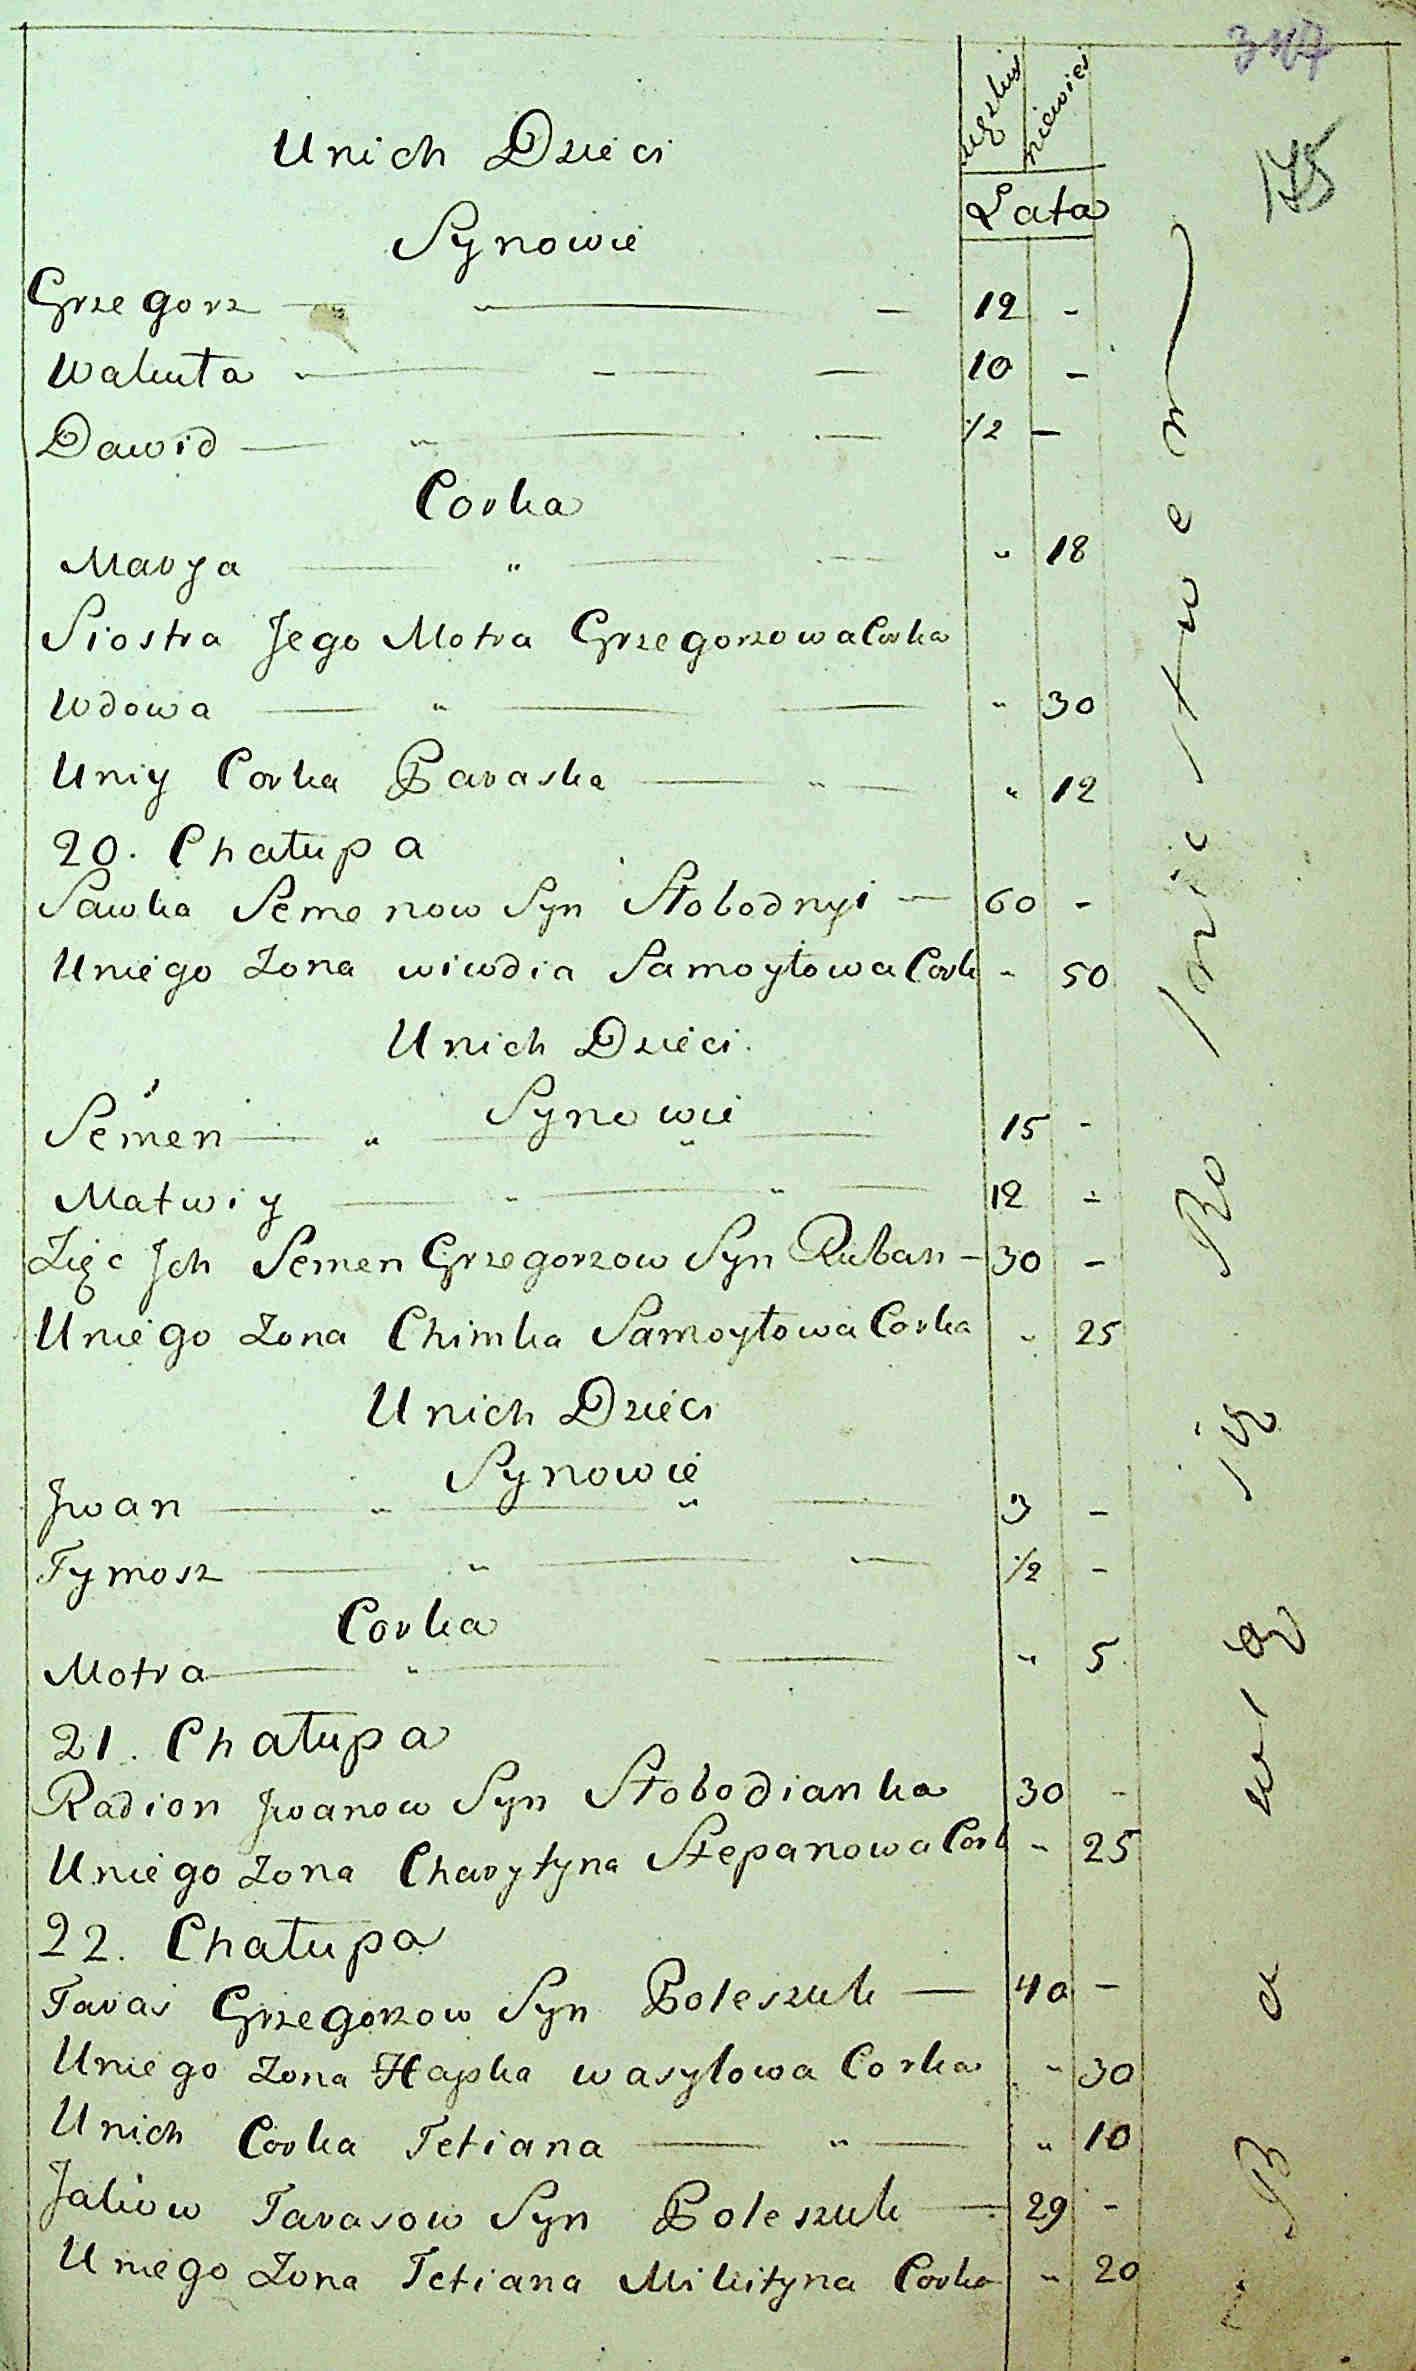 175
męzkie niewies
Unich Dzieci
Lata
Synowie
Grzegorz — " — 12 -
Wakuła — 10 -
Dawid — " — 1/2 -
Corka
Marya — " — " 18
Siostra Jego Motra Grzegorzowa Corka
Wdowa — " — " 30
Uniy Corka Paraska — " — " 12
20. Chałupa
Sawka Semenow Syn Słobodnyi — 60 -
Uniego Zona wiwdia Samoyłowa Cork " 50
Unich Dzieci
Synowie
Semen — " — " — 15 -
Matwiy — " — " — 12 -
Zięc Jch Semen Grzegorzow Syn Ruban — 30 -
Uniego Zona Chimka Samoyłowa Corka " 25
Unich Dzieci
Synowie
Jwan — " — " — 3 -
Tymosz — " — 1/2 -
Corka
Motra — " — " 5
21. Chałupa
Radion Jwanow Syn Słobodianka 30 -
Uniego Zona Charytyna Stepanowa Cork " 25
22. Chałupa
Taras Grzegorzow Syn Poleszuk — 40 -
Uniego Zona Hapka wasylowa Corka " 30
Unich Corka Tetiana — " — " 10
Jakow Tarasow Syn Poleszuk — 29 -
Uniego Zona Tetiana Mikityna Corka " 20